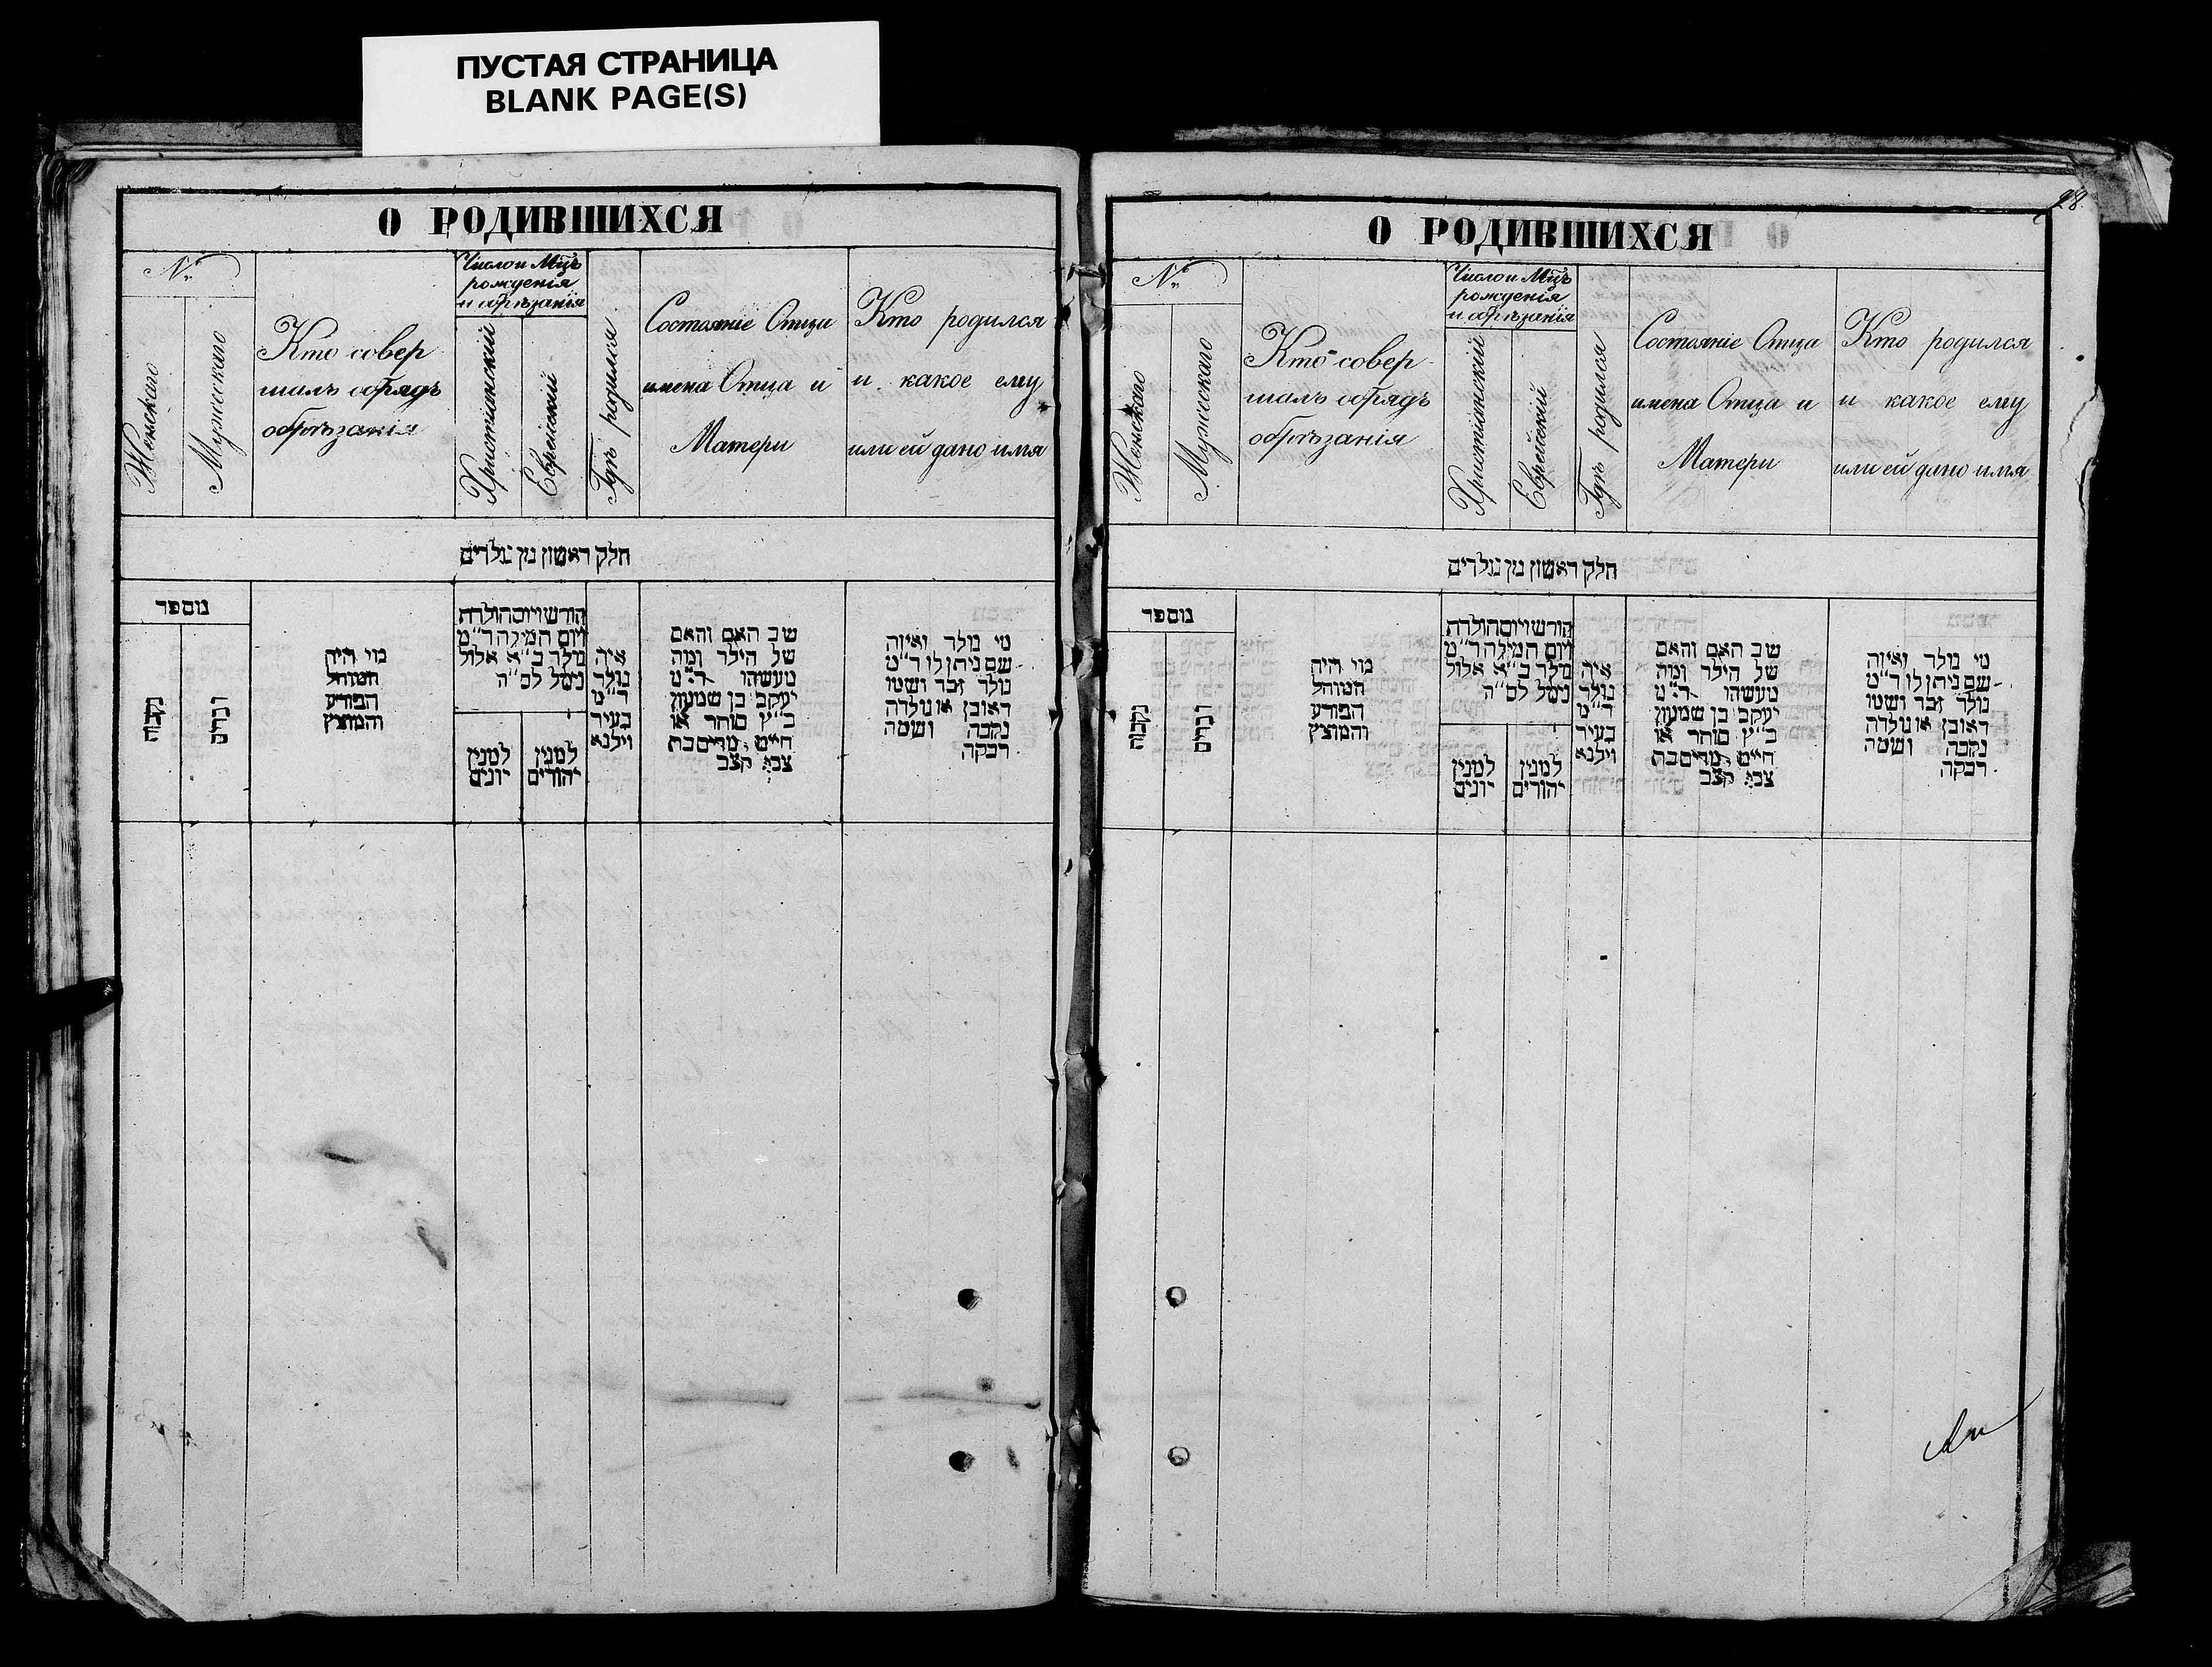 ПУСТАЯ СТРАНИЦА
BLANK PAGE(S)
О РОДИВШИХСЯ
№
Женскаго
Мужескаго
Кто совер
шалъ обрядъ
обрѣзанія
Число и Мцъ
рожденія
и обрѣзанія
Христіанскій
Еврейскій
Гдѣ родился
Состояніе Отца
имена Отца и
Матери
Кто родился
и какое ему
или ей дано имя
חלק ראשון מן נולדים
מספר
נקבות
זכרים
מי היה
המוהל
הפורע
והמוצץ
חודש ויום הולדת
ויום המילה ד״מ
נולד ב״א אלול
נימל לס״ה
למנין
יונים
למנין
יהודים
איה
נולד
ד״מ
בעיר
וילנא
שב האם והאם
של הילד ומה
מעשהו ד״מ
יעקב בן שמעון
כ״ץ סוחר או
חייט מרים בת
צבי קצב
מי נולד ואיזה
שם ניתן לו ד״מ
נולד זכר ושמו
ראובן או נולדה
נקבה ושמה
רבקה
28.
О РОДИВШИХСЯ
№
Женскаго
Мужескаго
Кто совер
шалъ обрядъ
обрѣзанія
Число и Мцъ
рожденія
и обрѣзанія
Христіанскій
Еврейскій
Гдѣ родился
Состояніе Отца
имена Отца и
Матери
Кто родился
и какое ему
или ей дано имя
חלק ראשון מן נולדים
מספר
נקבות
זכרים
מי היה
המוהל
הפורע
והמוצץ
חודש ויום הולדת
ויום המילה ד״מ
נולד ב״א אלול
נימל לס״ה
למנין
יונים
למנין
יהודים
איה
נולד
ד״מ
בעיר
וילנא
שב האם והאם
של הילד ומה
מעשהו ד״מ
יעקב בן שמעון
כ״ץ סוחר או
חייט מרים בת
צבי קצב
מי נולד ואיזה
שם ניתן לו ד״מ
נולד זכר ושמו
ראובן או נולדה
נקבה ושמה
רבקה